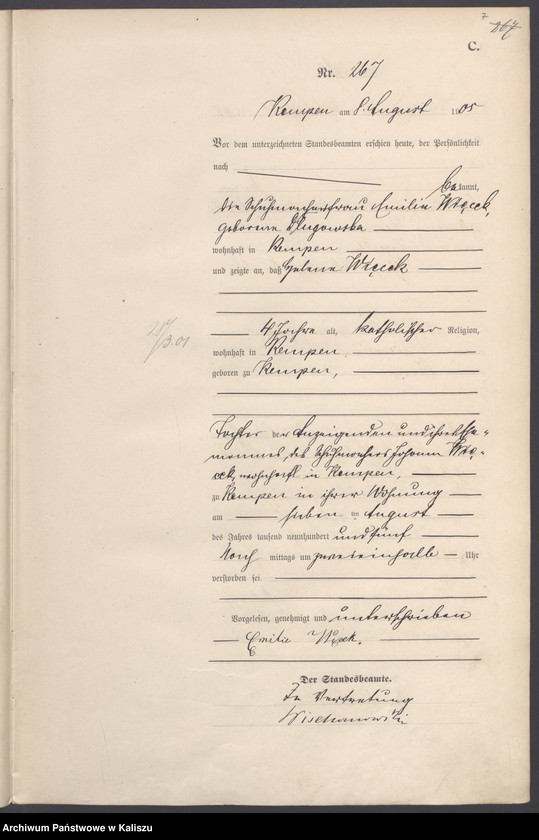 7
267
C.
Nr. 267
Kempen am 8. August 1905
Vor dem unterzeichneten Standesbeamten erschien heute, der Persönlichkeit
nach
bekannt,
die Schuhmacherfrau Emilie Więcek,
geborene Dlugowska
wohnhaft in Kempen
und zeigte an, daß Helene Więcek
4 Jahre alt, katholischer Religion,
wohnhaft in Kempen
geboren zu Kempen,
Tochter der Anzeigenden und ihres Ehe=
mannes, des Schuhmachers Johann Wię=
cek, wohnhaft in Kempen,
zu Kempen in ihrer Wohnung
am sieben ten August
des Jahres tausend neunhundert und fünf
Nach mittags um zweieinhalb Uhr
verstorben sei
Vorgelesen, genehmigt und unterschrieben
Emilie Więcek.
Der Standesbeamte.
In Vertretung
/3.01
Archiwum Państwowe w Kaliszu